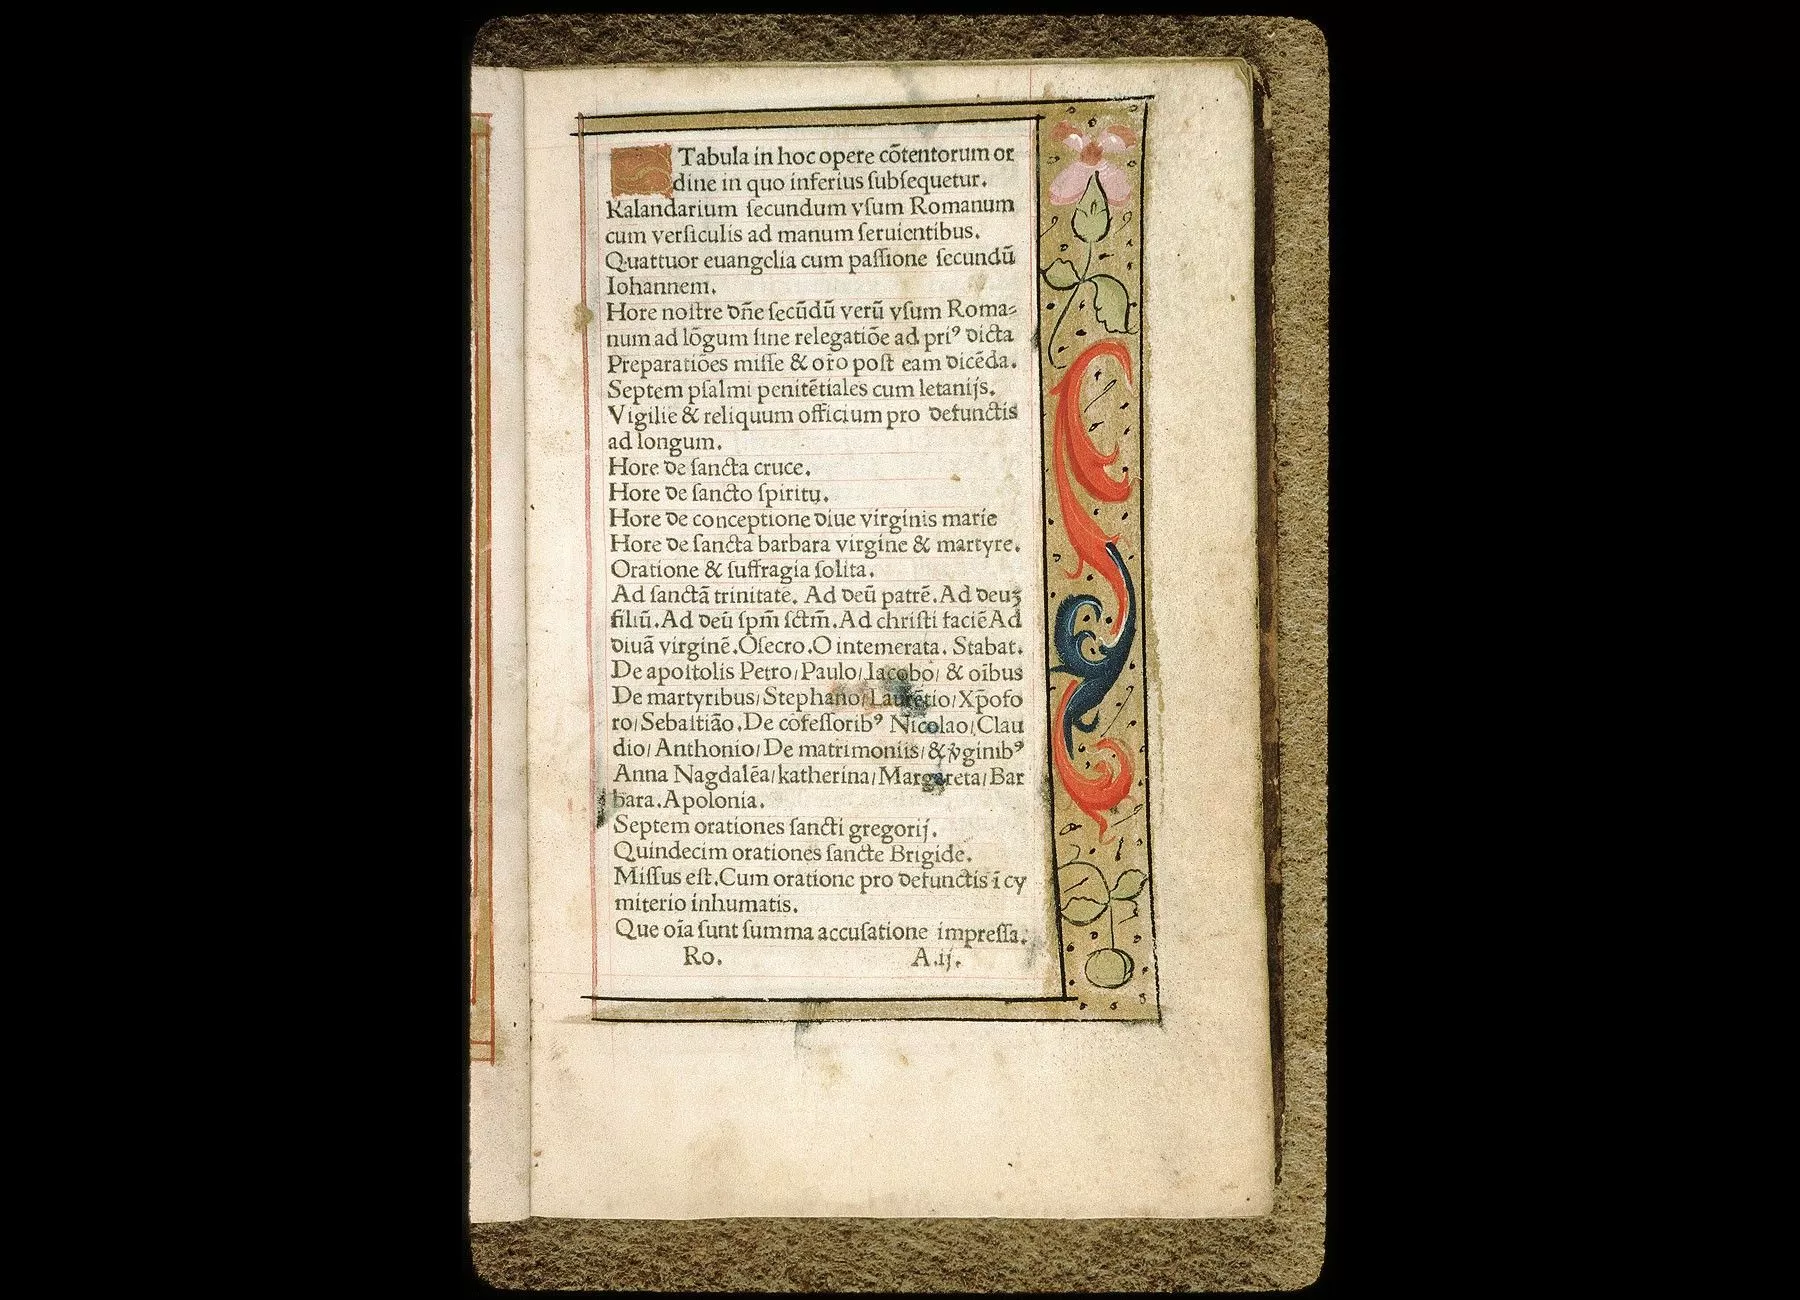 Tabula in hoc opere cõtentorum or
dine in quo inferius ſubſequetur.
Kalandarium ſecundum vſum Romanum
cum verſiculis ad manum ſeruientibus.
Quattuor euangelia cum paſſione ſecundũ
Iohannem.
Hore noſtre dñe ſecũdũ verũ vſum Roma⸗
num ad lõgum ſine relegatiõe ad priꝰ dicta
Preparatiões miſſe & oro poſt eam dicẽda.
Septem pſalmi penitẽtiales cum letanijs.
Vigilie & reliquum officium pro defunctis
ad longum.
Hore de ſancta cruce.
Hore de ſancto ſpiritu.
Hore de conceptione diue virginis marie
Hore de ſancta barbara virgine & martyre.
Oratione & ſuffragia ſolita.
Ad ſanctã trinitate. Ad deũ patrẽ. Ad deuꝫ
filiũ. Ad deũ ſpm̃ ſctm̃. Ad chriſti faciẽ Ad
diuã virginẽ. Oſecro. O intemerata. Stabat.
De apoſtolis Petro/ Paulo/ Iacobo/ & oĩbus
De martyribus/ Stephano/ Laurẽtio/ Xp̃ofo
ro/ Sebaſtião. De cõfeſſoribꝰ Nicolao/ Clau
dio/ Anthonio/ De matrimoniis/ & ṽginibꝰ
Anna Nagdalẽa/ katherina/ Margareta/ Bar
bara. Apolonia.
Septem orationes ſancti gregorij.
Quindecim orationes ſancte Brigide.
Miſſus eſt. Cum oratione pro defunctis ĩ cy
miterio inhumatis.
Que oĩa ſunt ſumma accuſatione impreſſa.
Ro. A.ij.